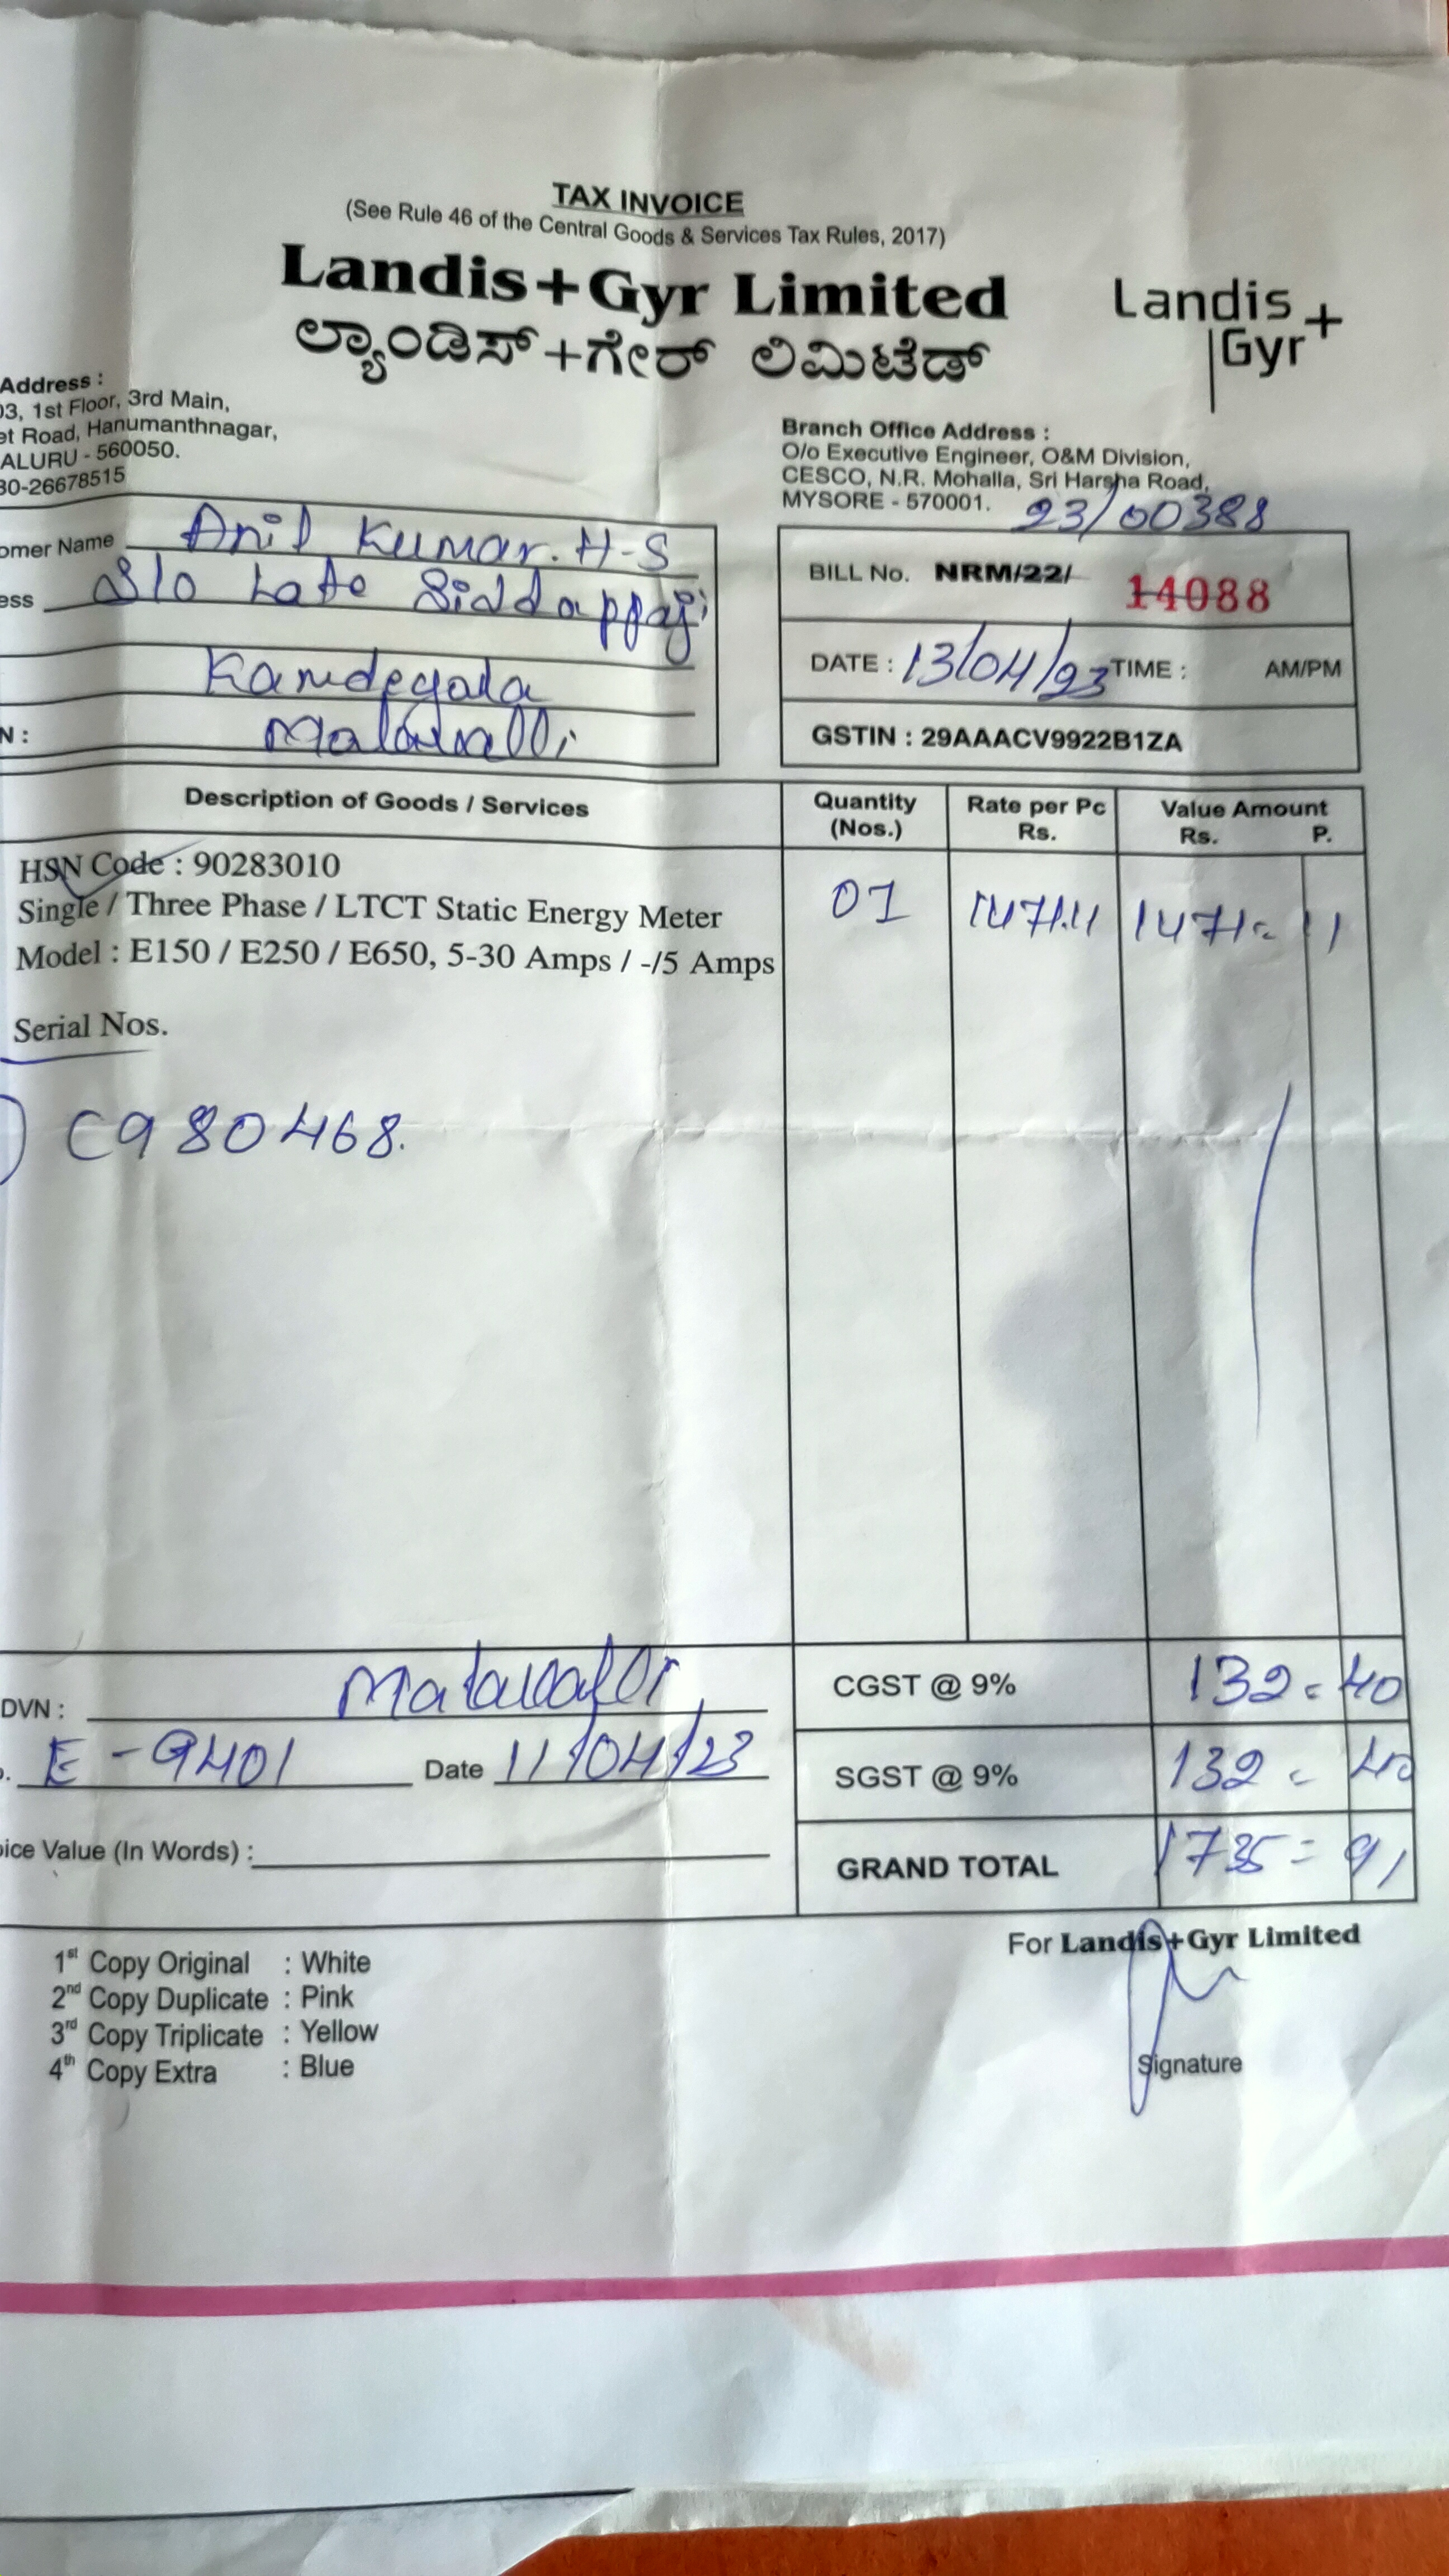 TAX INVOICE
(See Rule 46 of the Central Goods & Services Tax Rules, 2017)
Landis+Gyr Limited
ಲ್ಯಾಂಡಿಸ್+ಗೇರ್ ಲಿಮಿಟೆಡ್
Landis+
Gyr
Address :
03, 1st Floor, 3rd Main,
et Road, Hanumanthnagar,
ALURU - 560050.
30-26678515
Branch Office Address :
O/o Executive Engineer, O&M Division,
CESCO, N.R. Mohalla, Sri Harsha Road,
MYSORE - 570001.
23/00388
omer Name Anil Kumar. H-S
ess S/o Late Siddappaji
Kandegala
N : Malavalli
BILL No. NRM/22/ 14088
DATE : 13/04/23 TIME : AM/PM
GSTIN : 29AAACV9922B1ZA
Description of Goods / Services Quantity (Nos.) Rate per Pc Rs. Value Amount Rs. P.
HSN Code : 90283010
Single / Three Phase / LTCT Static Energy Meter 01 1471.11 1471=11
Model : E150 / E250 / E650, 5-30 Amps / -/5 Amps
Serial Nos.
) C980468.
DVN : Malavalli
CGST @ 9% 132=40
. E-9401 Date 11/04/23
SGST @ 9% 132=40
oice Value (In Words) :
GRAND TOTAL 1735=91
For Landis+Gyr Limited
1st Copy Original : White
2nd Copy Duplicate : Pink
3rd Copy Triplicate : Yellow
4th Copy Extra : Blue
Signature